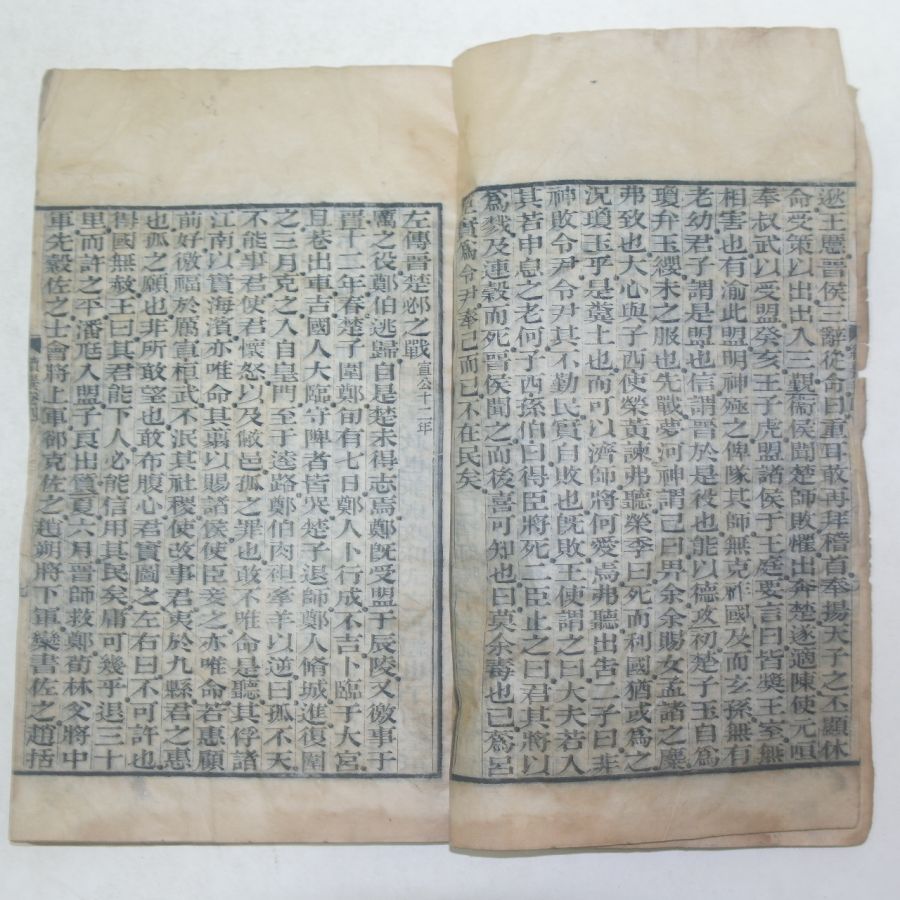 逖王慝晉侯三辭從命曰重耳敢再拜稽首奉揚天子之丕顯休
命受策以出出入三覲衛侯聞楚師敗懼出奔楚遂適陳使元咺
奉叔武以受盟癸亥王子虎盟諸侯于王庭要言曰皆奬王室無
相害也有渝此盟明神殛之俾隊其師無克祚國及而玄孫無有
老幼君子謂是盟也信謂晉於是役也能以德攻初楚子玉自爲
瓊弁玉纓未之服也先戰夢河神謂己曰畀余余賜女孟諸之麋
弗致也大心與子西使榮黃諫弗聽榮季曰死而利國猶或爲之
況瓊玉乎是糞土也而可以濟師將何愛焉弗聽出告二子曰非
神敗令尹令尹其不勤民實自敗也旣敗王使謂之曰大夫若入
其若申息之老何子西孫伯曰得臣將死二臣止之曰君其將以
爲戮及連穀而死晉侯聞之而後喜可知也曰莫余毒也已蔿呂
臣實爲令尹奉己而已不在民矣
左傳晉楚邲之戰 宣公十二年
厲之役鄭伯逃歸自是楚未得志焉鄭旣受盟于辰陵又徼事于
晉十二年春楚子圍鄭旬有七日鄭人卜行成不吉卜臨于大宮
且巷出車吉國人大臨守陴者皆哭楚子退師鄭人脩城進復圍
之三月克之入自皇門至于逵路鄭伯肉袒牽羊以逆曰孤不天
不能事君使君懷怒以及敝邑孤之罪也敢不唯命是聽其俘諸
江南以實海濱亦唯命其翦以賜諸侯使臣妾之亦唯命若惠顧
前好徼福於厲宣桓武不泯其社稷使改事君夷於九縣君之惠
也孤之願也非所敢望也敢布腹心君實圖之左右曰不可許也
得國無赦王曰其君能下人必能信用其民矣庸可幾乎退三十
里而許之平潘尫入盟子良出質夏六月晉師救鄭荀林父將中
軍先縠佐之士會將上軍郤克佐之趙朔將下軍欒書佐之趙括